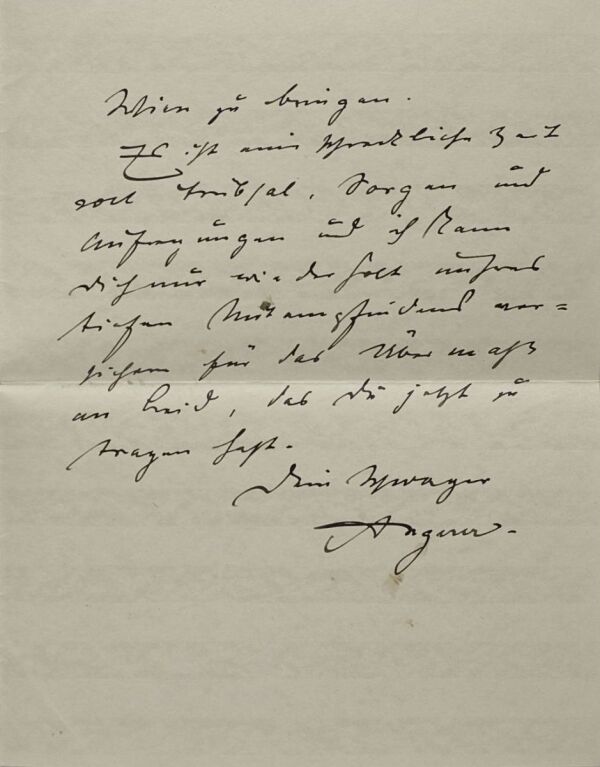 Wien zu bringen.
Es ist eine schreckliche Zeit
voll Trübsal, Sorgen und
Aufregungen und ich kann
Dich nur wiederholt unseres
tiefen Mitempfindens ver=
sichern für das Übermaß
an Leid, das Du jetzt zu
tragen hast.
Dein Schwager
Angerer.